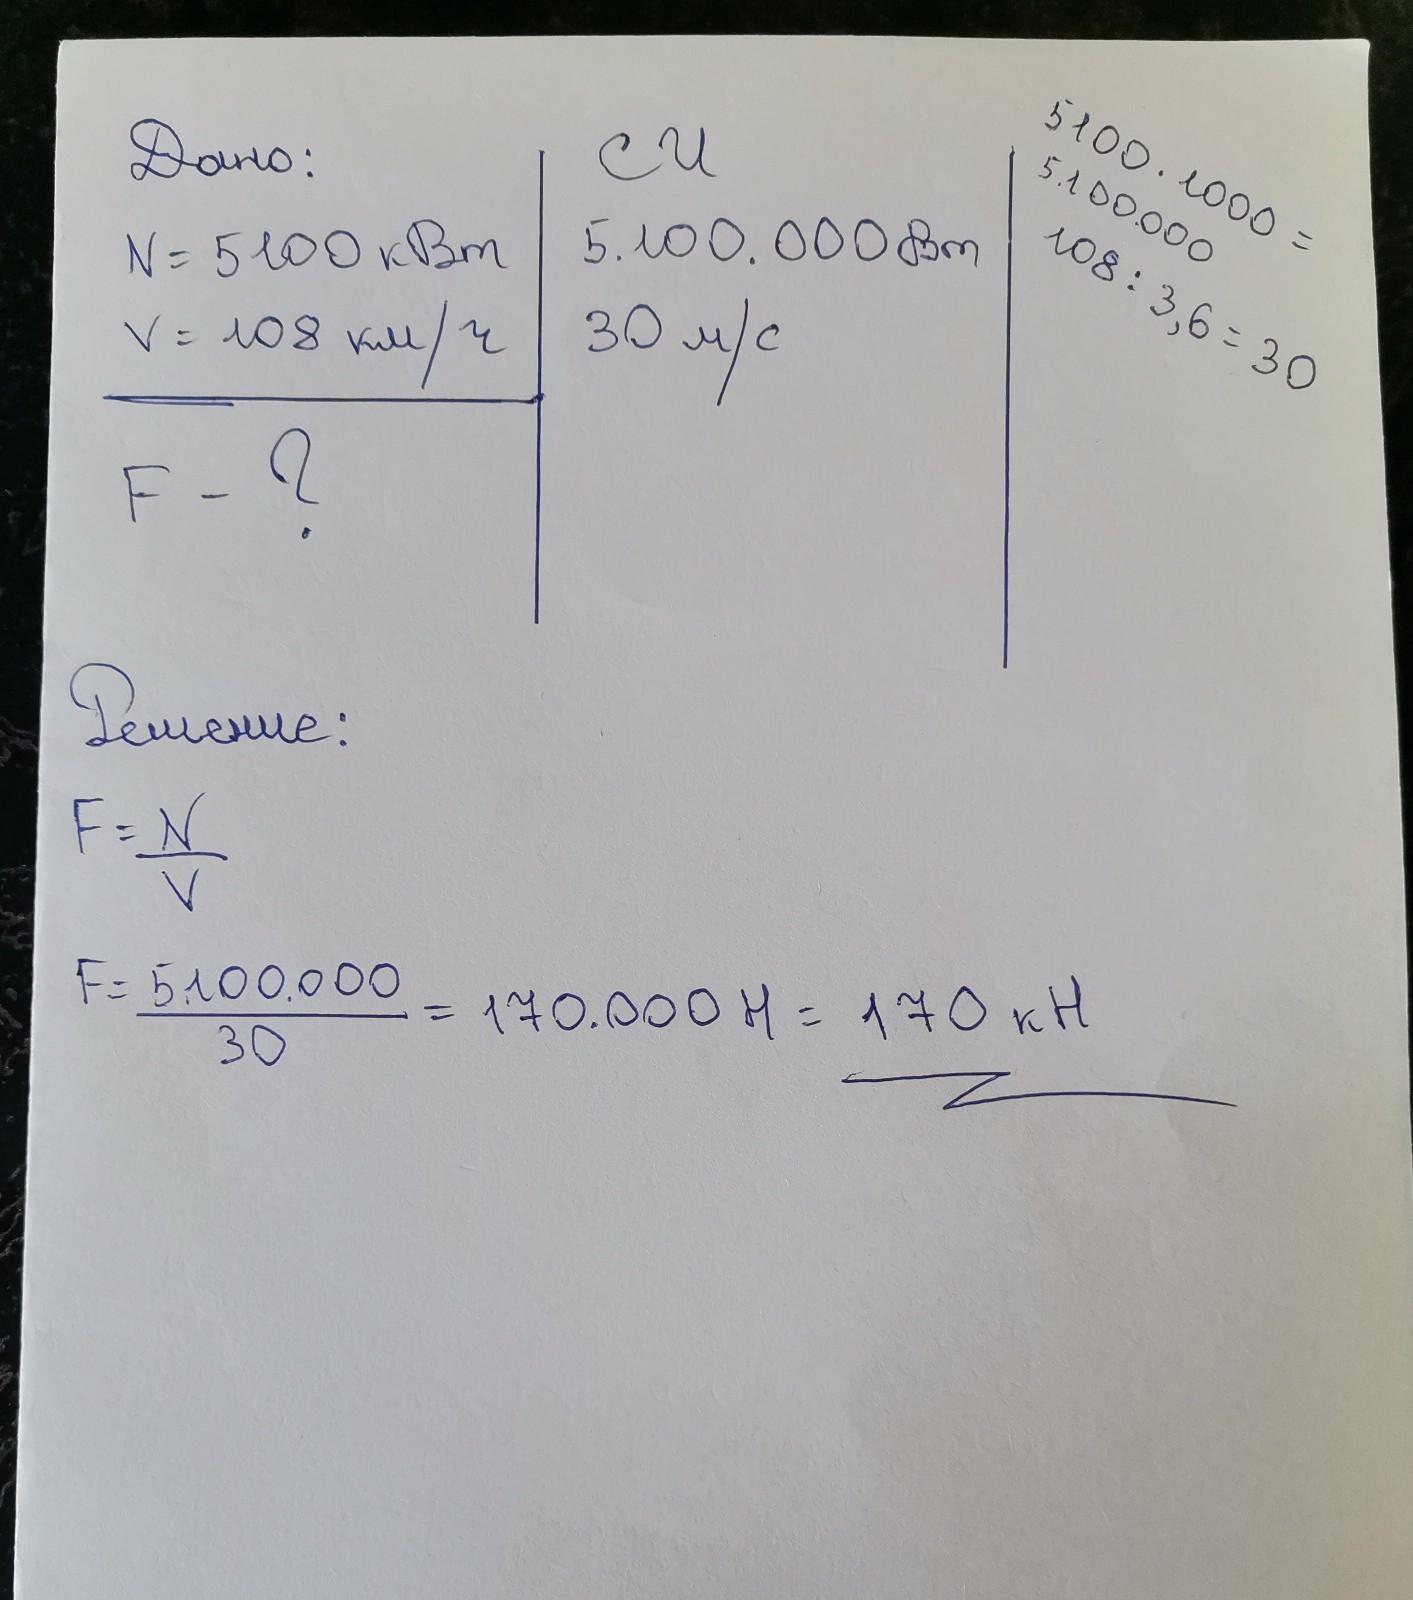 Дано:
N = 5100 кВт
V = 108 км/ч
F - ?
СИ
5.100.000 Вт
30 м/с
5100 . 1000 =
5.100.000
108 : 3,6 = 30
Решение:
F = N
V
F = 5.100.000 = 170.000 Н = 170 кН
30